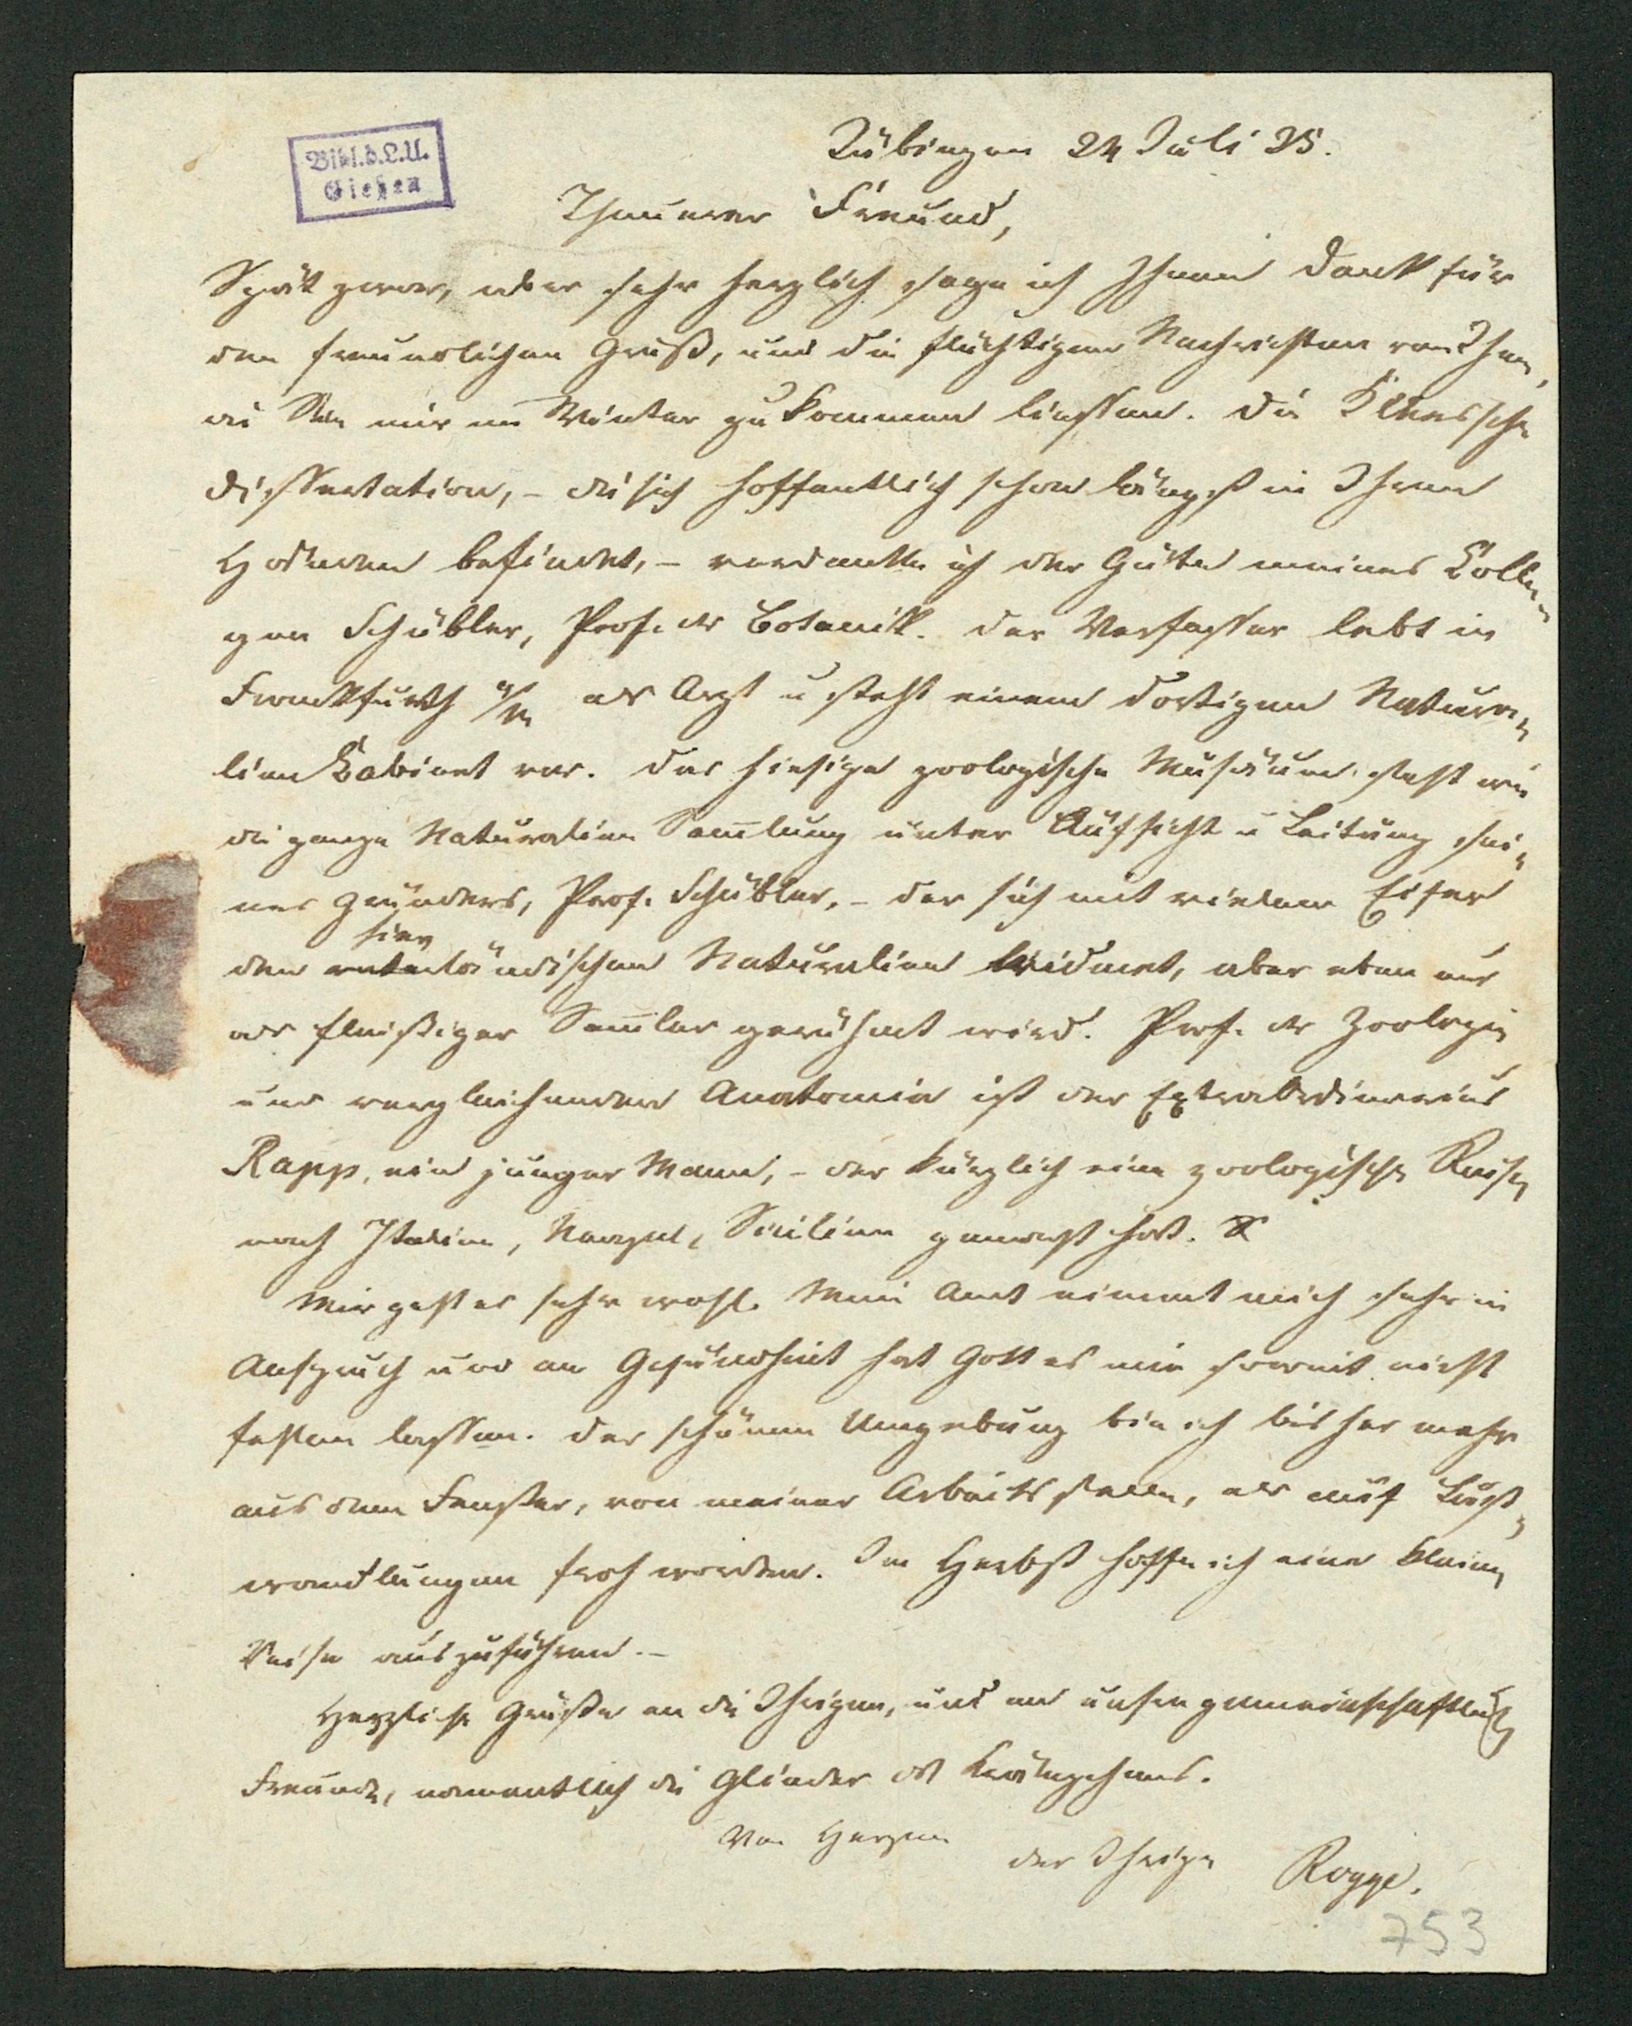 Bibl. d. L. U.
Gießen
Tübingen 24 Juli 25.
Theuerer Freund,
Spät zwar, aber sehr herzlich sage ich Ihnen Dank für
den freundlichen Gruß, und die flüchtigen Nachrichten von Ihnen,
die Sie mir im Winter zukommen liessen. Die Kleessche
Dissertation, – die sich hoffentlich schon längst in Ihren
Händen befindet, – verdankte ich der Güte meines Colle-
gen Schübler, Prof. der Botanik. Der Verfasser lebt in
Frankfurth a/M als Arzt u steht einem dortigen Natura-
lien Cabinet vor. Das hiesige zoologische Musäum steht wie
die ganze Naturalien Sam̅lung unter Aufsicht u Leitung sei-
nes Gründers, Prof. Schübler, – der sich mit vielem Eifer
hier
den vaterländischen Naturalien widmet, aber eben nur
als fleißiger Sam̅ler gerühmt wird. Prof. der Zoologie
und vergleichenden Anatomie ist der Extraordinarius
Rapp, ein junger Mann, – der kürzlich eine zoologische Reise
nach Italien, Neapel, Sicilien gemacht hat.
Mir geht es sehr wohl. Mein Amt nimmt mich sehr in
Anspruch und an Gesundheit hat Gott es mir soweit nicht
fehlen lassen. Der schönen Umgebung bin ich bisher mehr
aus dem Fenster, von meiner Arbeitsstelle, als auf Lust-
wandlungen froh worden. Im Herbst hoffe ich eine kleine
Reise auszuführen. –
Herzliche Grüße an die Ihrigen, und an unsre gemeinschaftliche
Freunde, namentlich die Glieder des Kränzchens.
Von Herzen
der Ihrige Rogge.
753